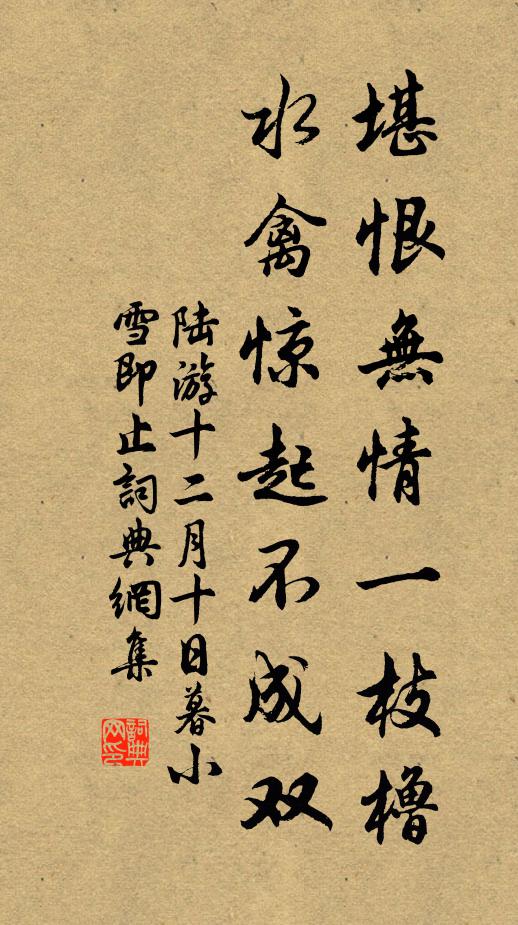 堪恨無情一枝櫓
水禽惊起不成双
陆游十二月十日暮小
雪即止詞典網集
詞典网印